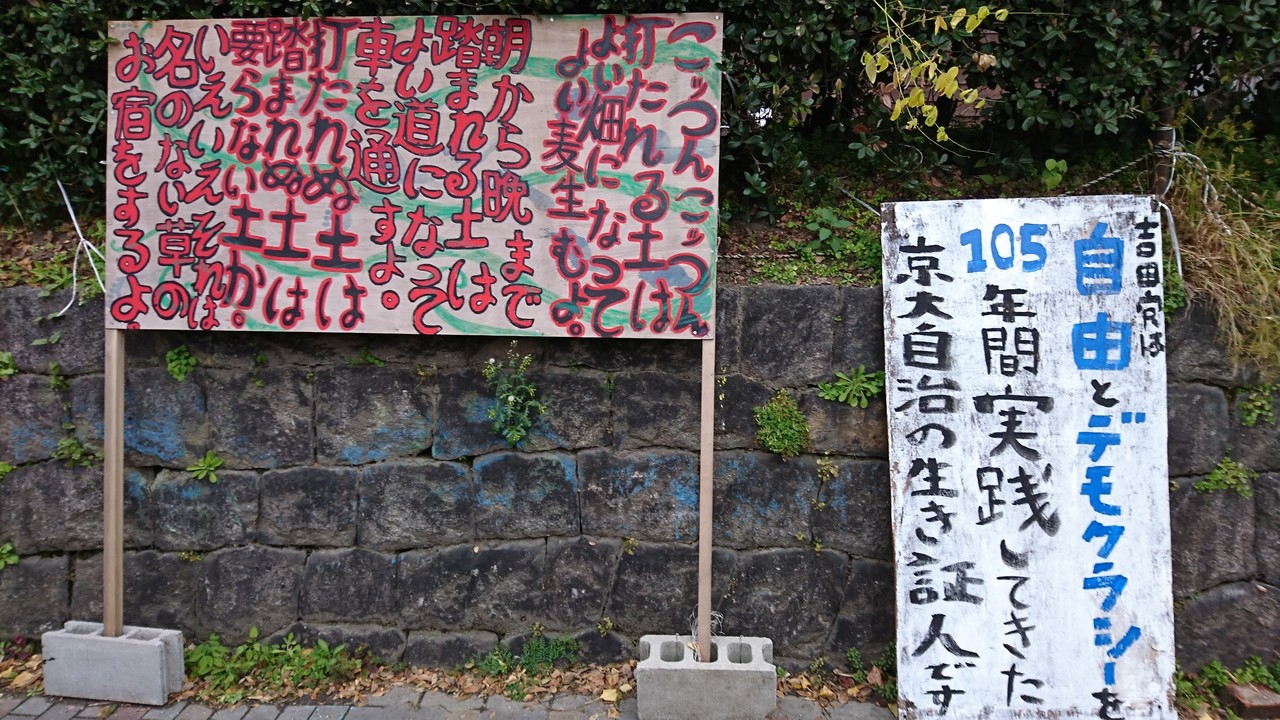 こッつんこッつん
打たれる土は
よい畑になつて
よい麦生むよ。
朝から晩まで
踏まれる土は
よい道になって
車を通すよ。
打たれぬ土は
踏まれぬ土は
要らない土か。
いえいえそれは
名のない草の
お宿をするよ。
吉田寮は
自由とデモクラシーを
105年間実践してきた
京大自治の生き証人です